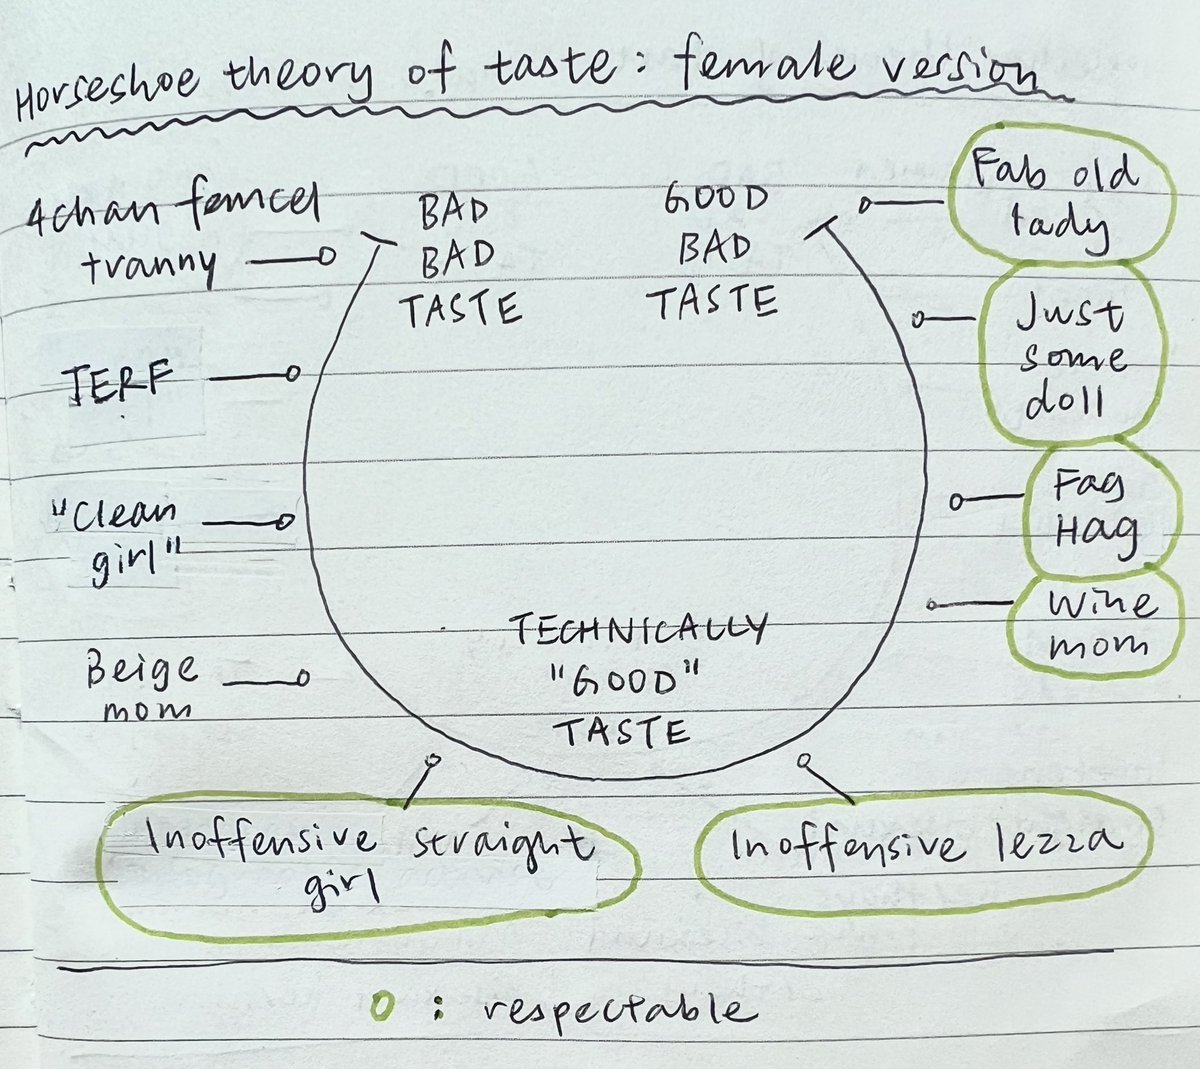 Horseshoe theory of taste: female version
4chan femcel
tranny
BAD
BAD
TASTE
GOOD
BAD
TASTE
Fab old
tady
Just
some
doll
TERF
"Clean
girl"
Fag
Hag
Wine
mom
Beige
mom
TECHNICALLY
"GOOD"
TASTE
Inoffensive straight
girl
Inoffensive lezza
0 : respectable